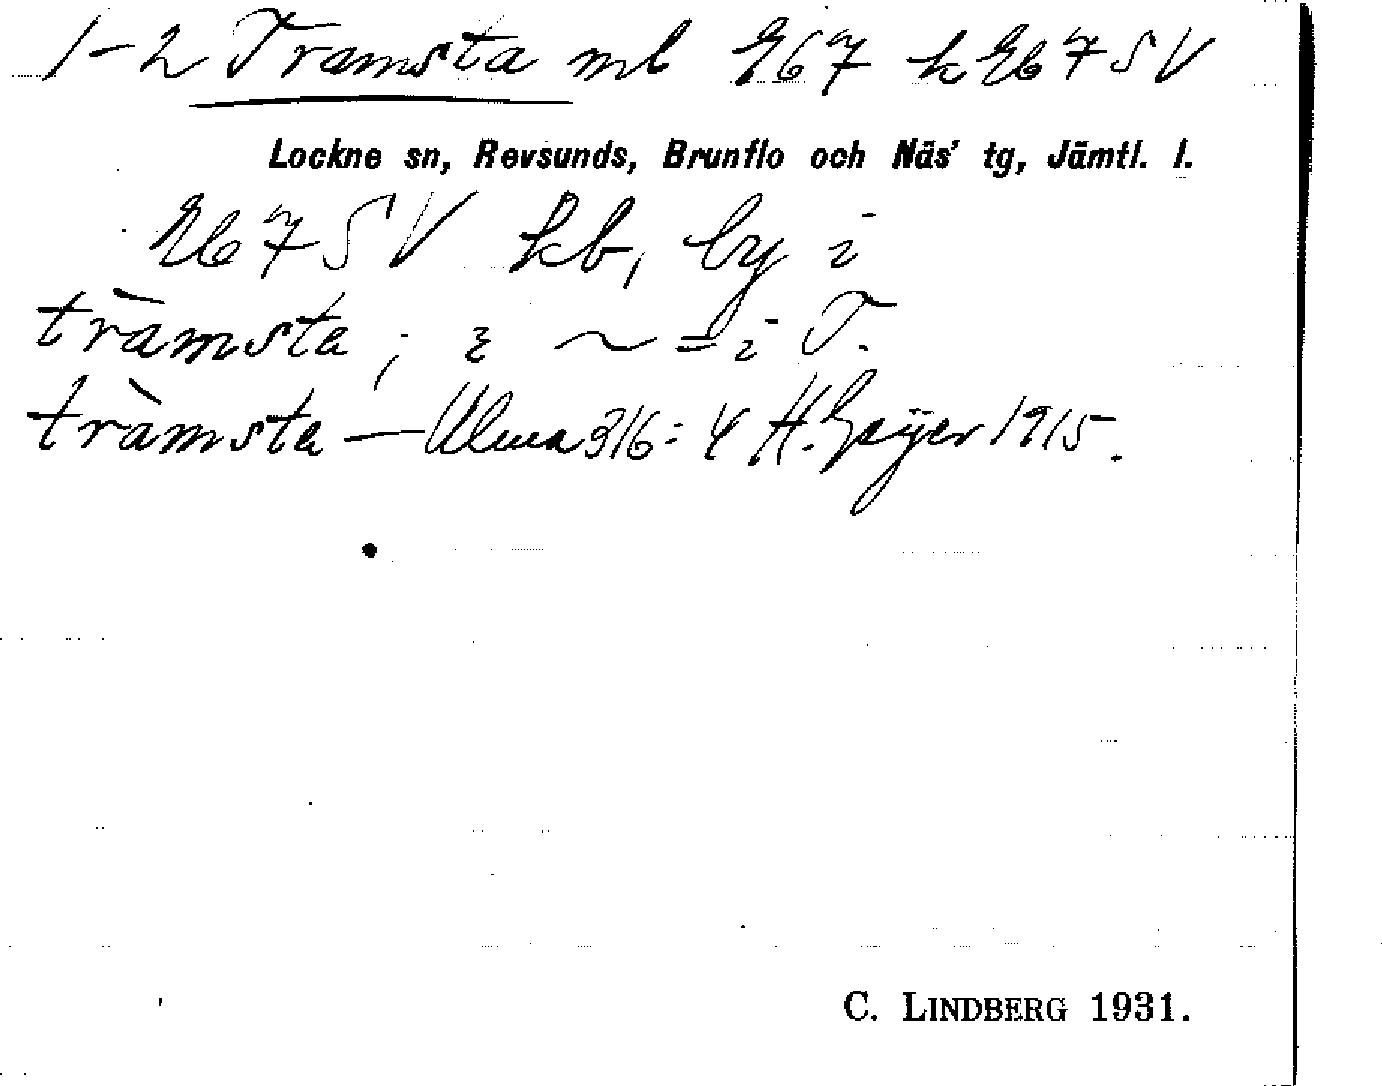 1-2 Tramsta ml Eb7 k Eb7SV
Lockne sn, Revsunds, Brunflo och Näs' tg, Jämtl. l.
Eb7SV kb, by i
tràmsta; i ~ = i T.
tràmsta — Ulma 316:4 H. Geijer 1915.
C. LINDBERG 1931.